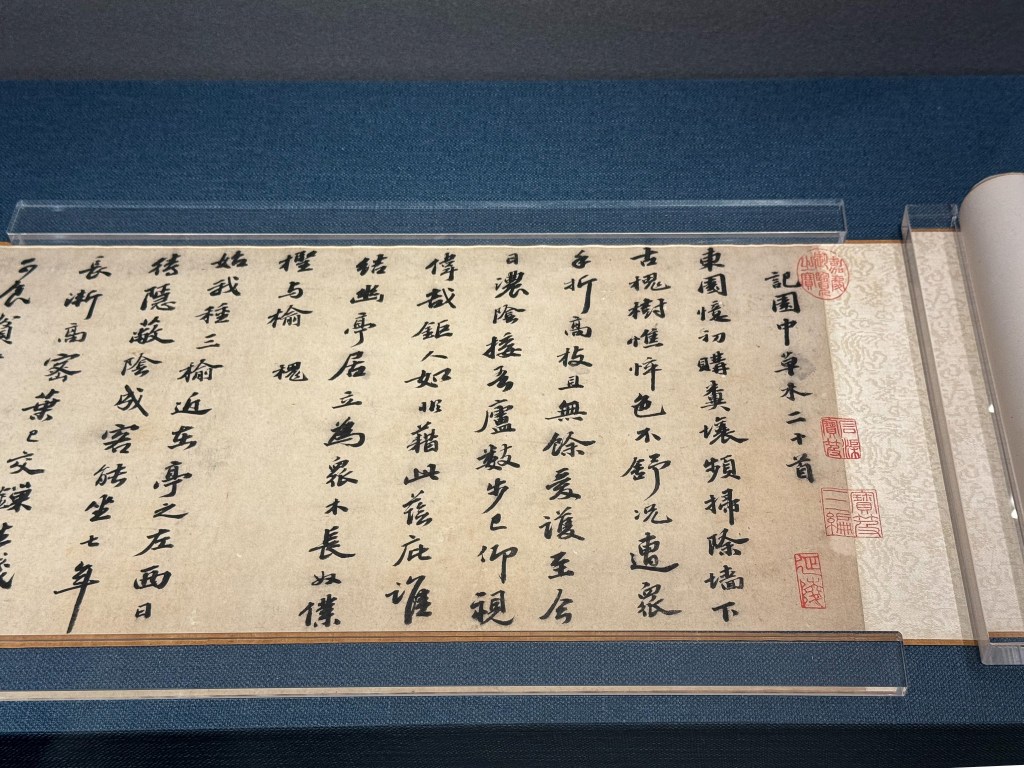 記園中草木二十首
東園憶初購糞壤頻掃除墻下
古槐樹憔悴色不舒況遭眾
手折高枝且無餘愛護至今
日濃陰接吾廬數步已仰視
偉哉鉅人如非藉此蔭庇誰
結幽亭居立為眾木長奴僕
檉与榆 槐
始我種三榆近在亭之左西日
待隱蔽陰成客能坐七年
長漸高密葉已交鏁
可食